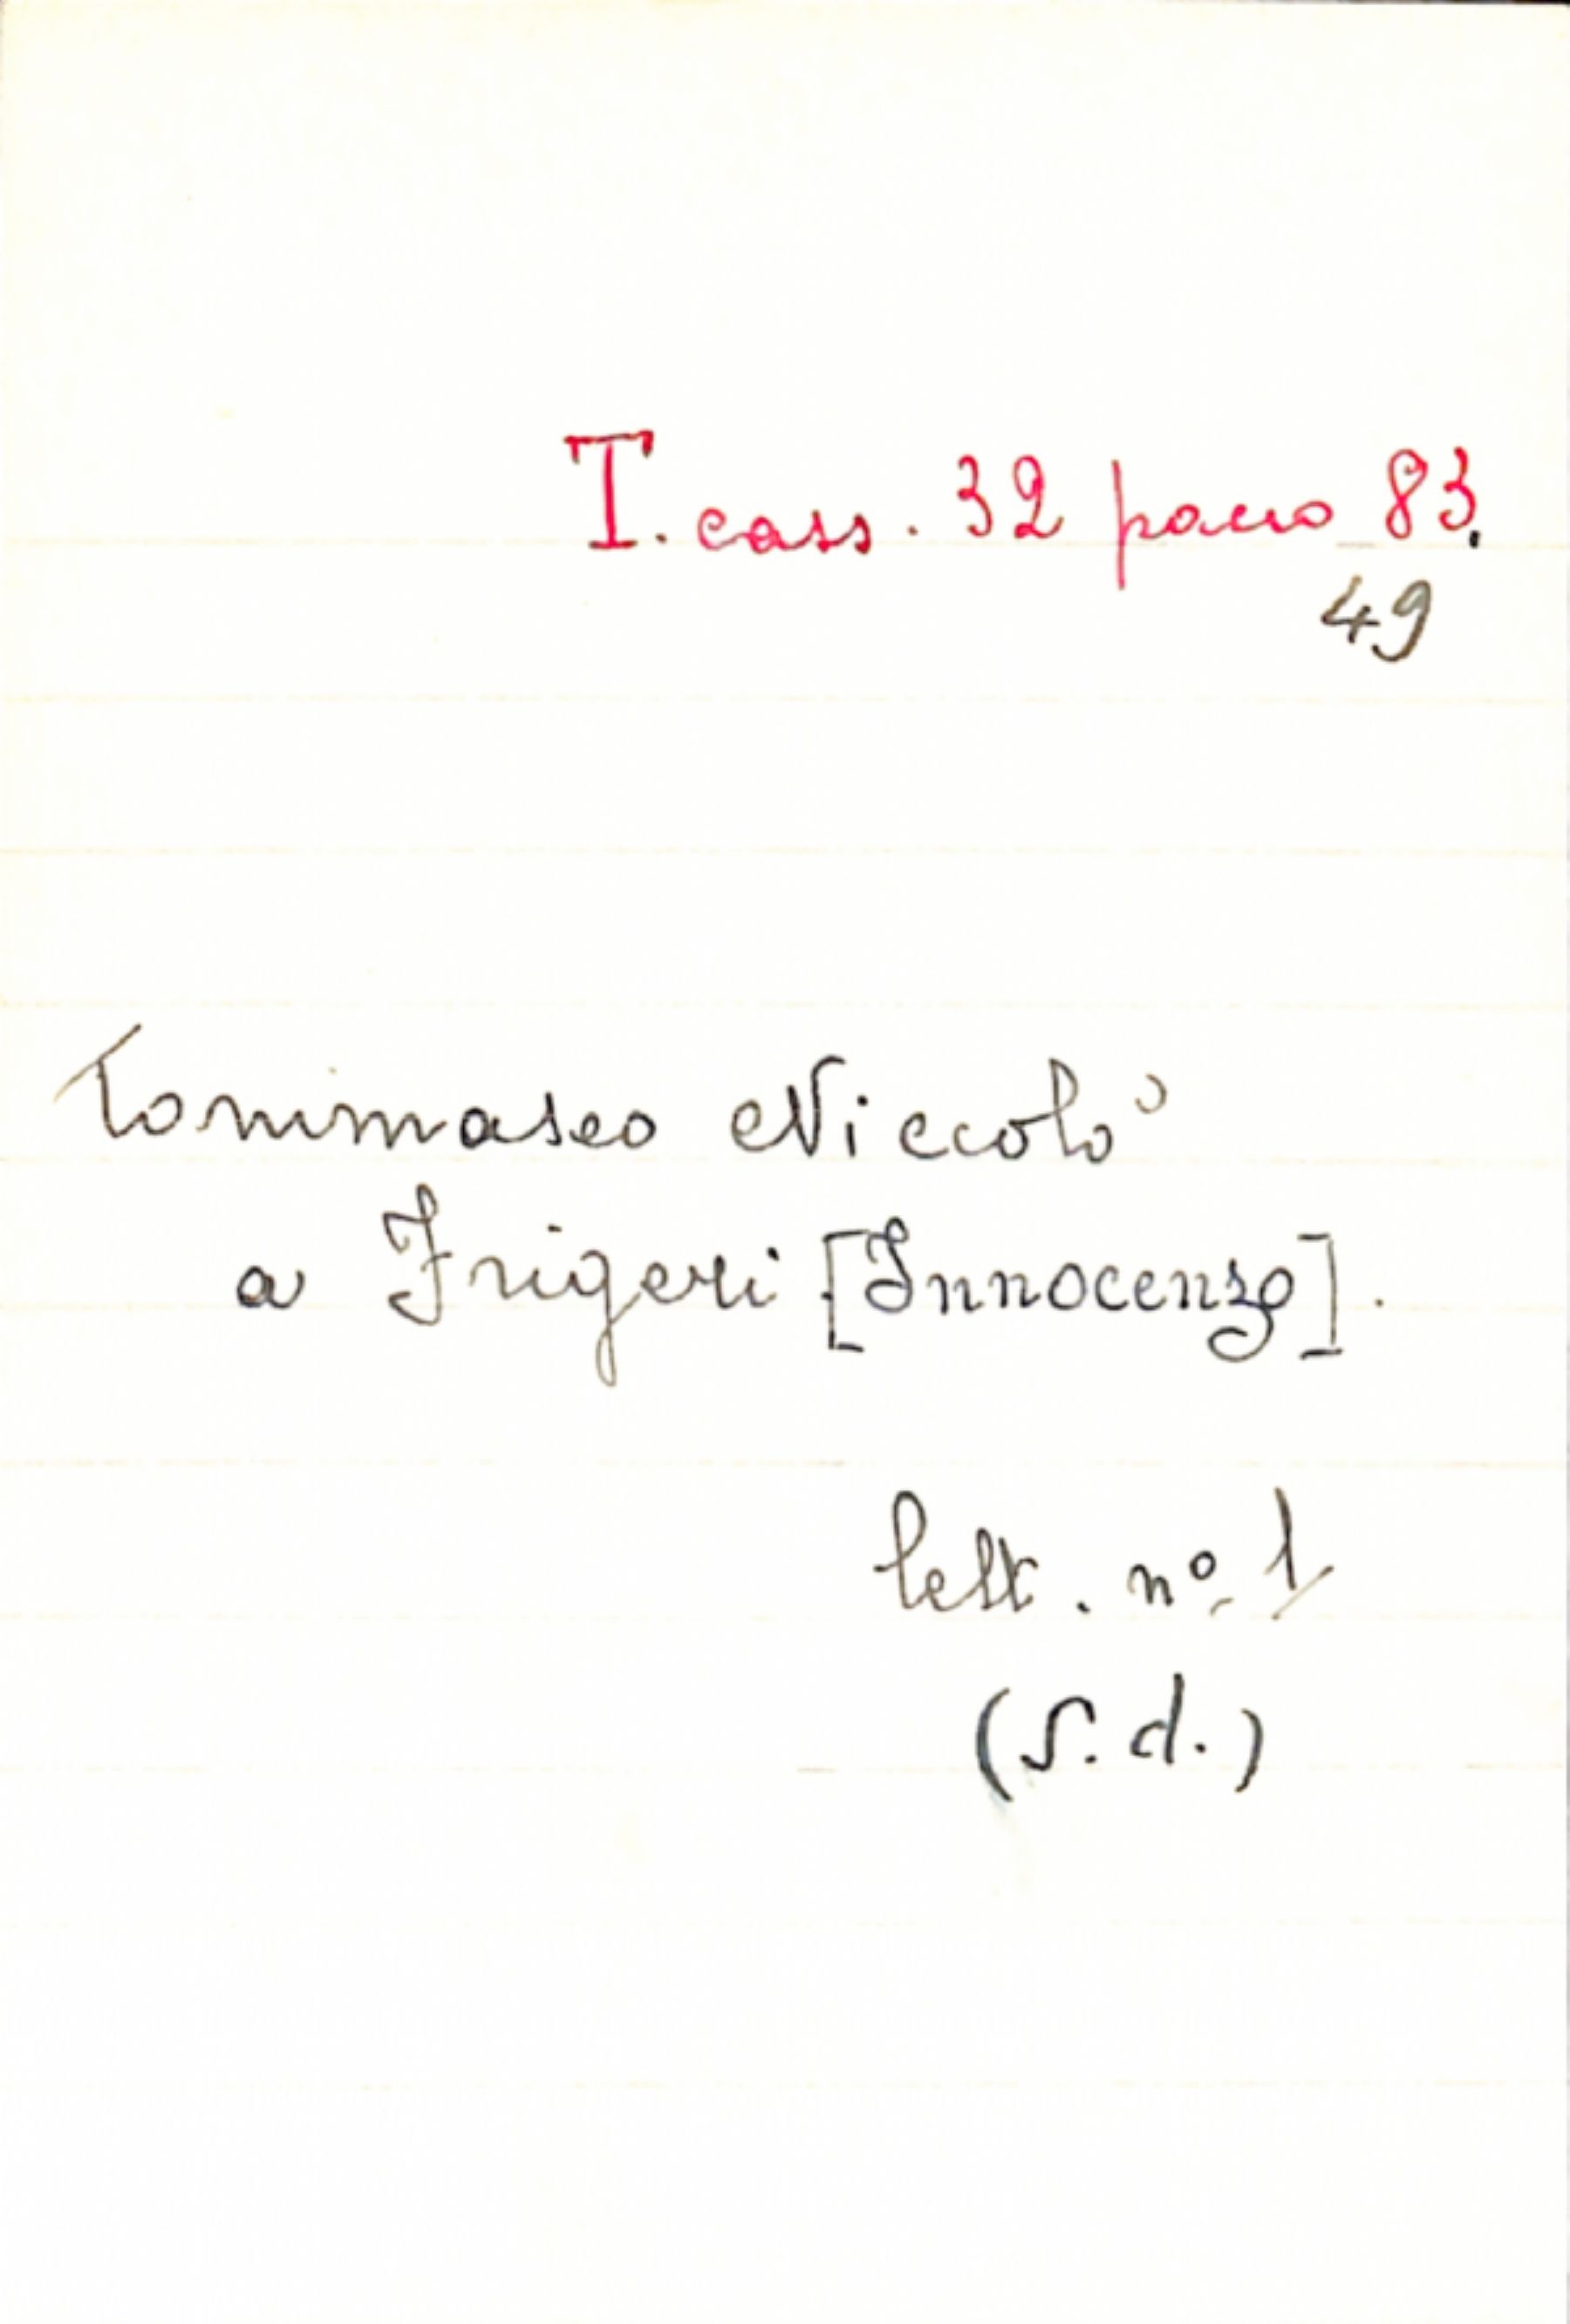 T. cass. 32 pacco 83.
49
Tommaseo Niccolò
a Frigeri [Innocenzo].
lett. nº 1
(S. d.)